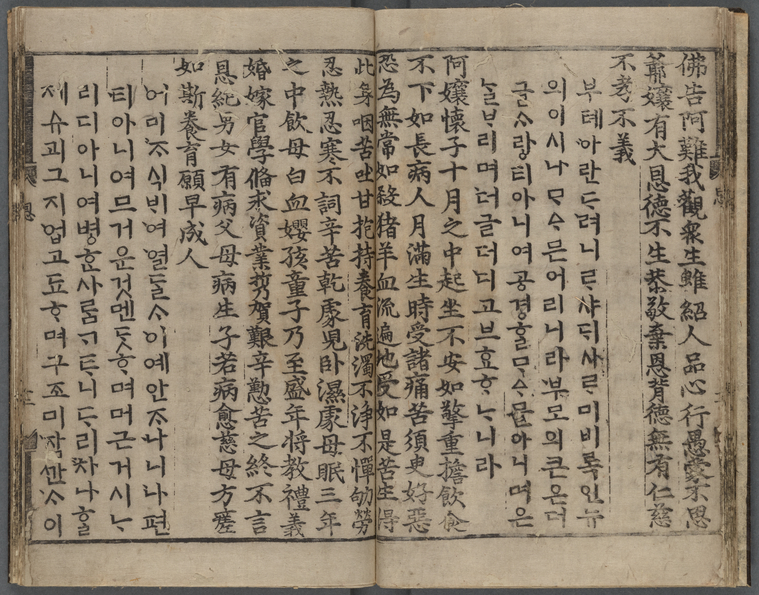 佛告阿難我觀衆生雖紹人品心行愚蒙不思
爺孃有大恩德不生恭敬棄恩背德無有仁慈
不孝不義
부톄아란ᄃᆞ려니ᄅᆞ샤ᄃᆡ사ᄅᆞ미비록인뉴
의이시나ᄆᆞᅀᆞ믄어리니라부모의큰은더
글ᄉᆞ랑티아니여공경ᄒᆞᆯᄆᆞᅀᆞᄆᆞᆯ아니며은
늘ᄇᆞ리며더글더디고브효ᄒᆞᄂᆞ니라
阿孃懷子十月之中起坐不安如擎重擔飮食
不下如長病人月滿生時受諸痛苦須臾好惡
恐爲無常如殺猪羊血流遍地受如是苦生得
此身咽苦吐甘抱持養育洗濁不淨不憚劬勞
忍熱忍寒不詞辛苦乾處兒臥濕處母眠三年
之中飮母白血嬰孩童子乃至盛年將敎禮義
婚嫁官學俻求資業携賀艱辛懃苦之終不言
恩絁男女有病父母病生子若病愈慈母方瘥
如斯養育願早成人
어미ᄌᆞ식ᄇᆡ여열ᄃᆞᆯᄉᆞ이예안ᄌᆞ나니나편
티아니여므거운것멘ᄃᆞᆺᄒᆞ며머근거시ᄂᆞ
리디아니여병ᄒᆞᆫ사ᄅᆞᆷᄀᆞᄐᆞ니ᄃᆞ리차나ᄒᆞᆯ
제슈괴그지업고됴ᄒᆞ며구조미자ᇝᄉᆞ이